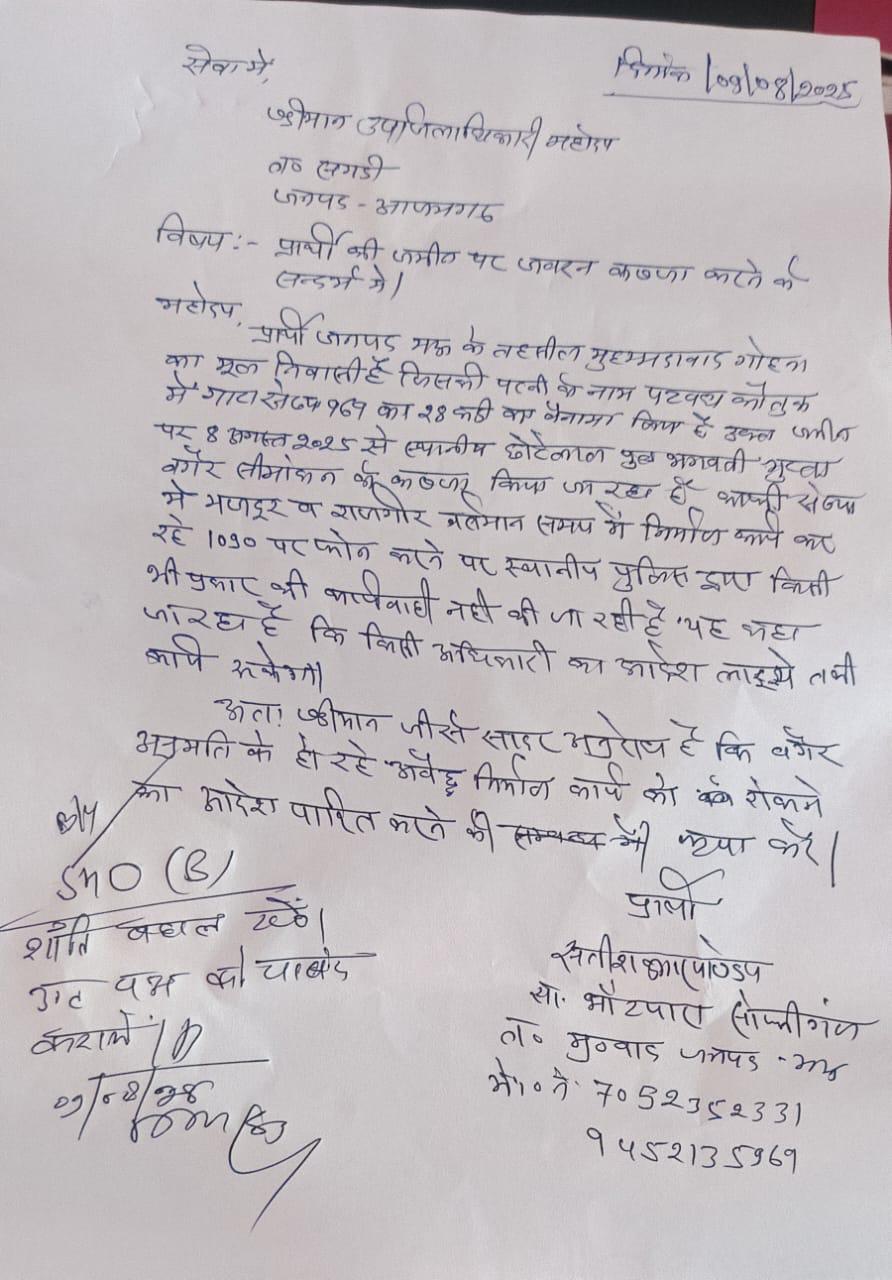 सेवा में,
दिनांक /09/08/2025
श्रीमान उपजिलाधिकारी महोदय
त० सगडी
जनपद - आजमगढ
विषय :- प्रार्थी की जमीन पर जबरन कब्जा करने के
सन्दर्भ में।
महोदय,
प्रार्थी जनपद मऊ के तहसील मुहम्मदाबाद गोहना
का मूल निवासी है जिसकी पत्नी के नाम पटवध कौतुक
में गाटा संख्या 969 का 28 कड़ी का बैनामा किया है उक्त जमीन
पर 8 अगस्त 2025 से स्थानीय छोटेलाल पुत्र भगवती गुप्ता
बगैर सीमांकन के कब्जा किया जा रहा है काफी संख्या
में मजदूर व राजगीर वर्तमान समय में निर्माण कार्य कर
रहे 1090 पर फोन करने पर स्थानीय पुलिस द्वारा किसी
भी प्रकार की कार्यवाही नही की जा रही है यह कहा
जा रहा है कि किसी अधिकारी का आदेश लाइये तभी
कार्य रूकेगा।
अतः श्रीमान जी से सादर अनुरोध है कि बगैर
अनुमति के हो रहे अवैद्ध निर्माण कार्य को रोकने
का आदेश पारित करने की कृपा करें।
प्रार्थी
SHO (B)
शांति बहाल रखें।
पक्ष को पाबंद
करायें।
सतीश कुमार पाण्डेय
सा. भाँटपारा सोफीगंज
त० मु०बाद जनपद - मऊ
मो० नं० 7052352331
9452135969